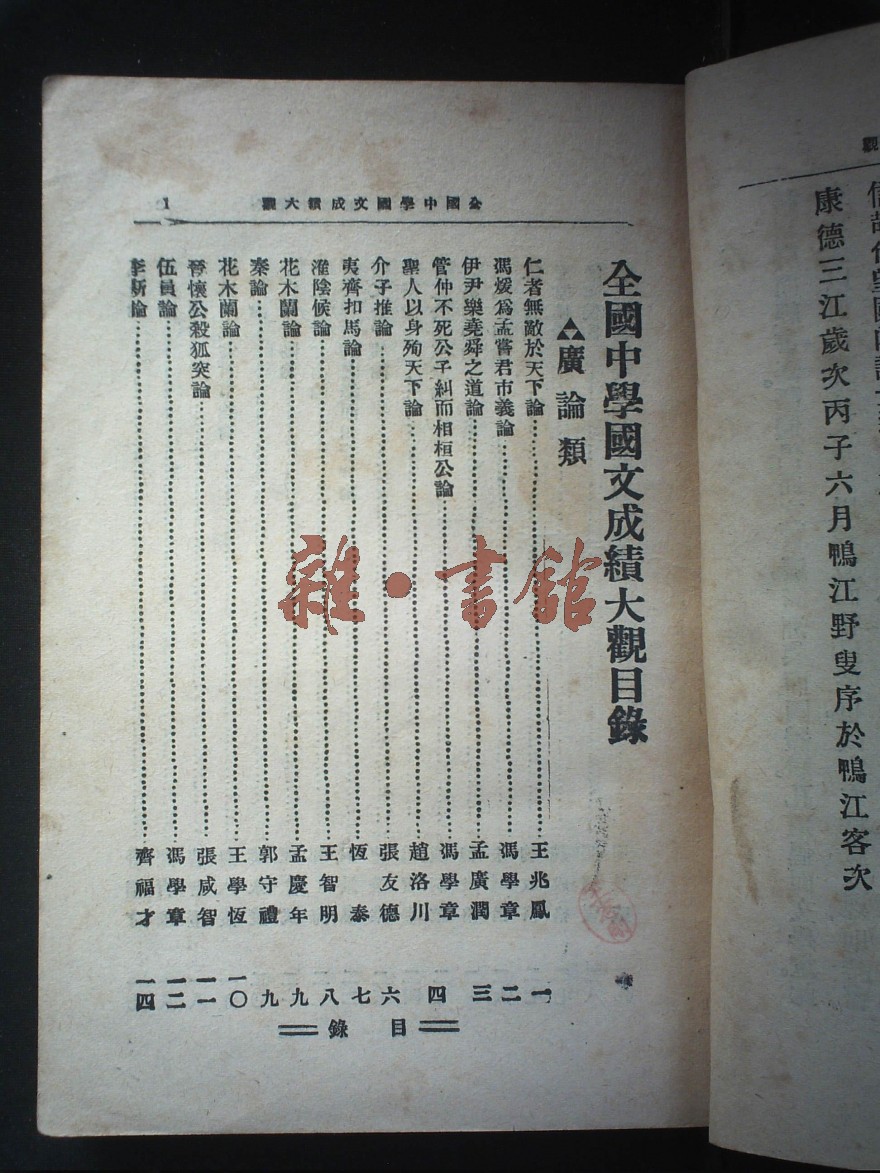 康德三江歲次丙子六月鴨江野叟序於鴨江客次
全國中學國文成績大觀 1
全國中學國文成績大觀目錄
廣論類
仁者無敵於天下論 王兆鳳 一
馮煖爲孟嘗君市義論 馮學章 二
伊尹樂堯舜之道論 孟廣潤 三
管仲不死公子糾而相桓公論 馮學章 四
聖人以身殉天下論 趙洛川
介子推論 張友德 六
夷齊扣馬論 恆泰 七
淮陰候論 王智明 八
花木蘭論 孟慶年 九
秦論 郭守禮 九
花木蘭論 王學恆 一〇
晉懷公殺狐突論 張咸智 一一
伍員論 馮學章 一二
李斯論 齊福才 一四
目錄
雜·書館